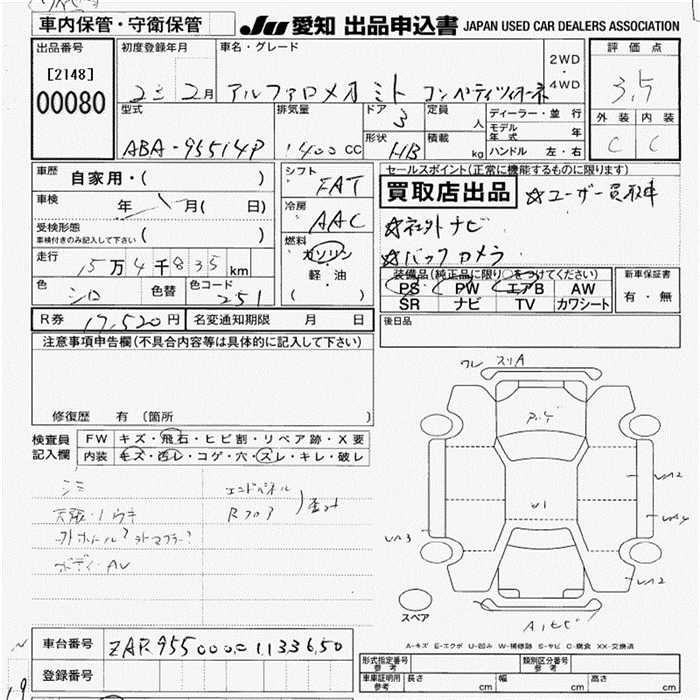 車内保管・守衛保管
JU 愛知 出品申込書 JAPAN USED CAR DEALERS ASSOCIATION
出品番号 初度登録年月 車名・グレード 評価点
[2148]
00080
23 2月 アルファロメオ ミト コンペティツィオーネ 2WD・4WD 3.5
型式 排気量 ドア 定員 ディーラー・並行 外装 内装
3 人 モデル年式 年
形状 積載
ABA-95514P 1400 CC HB kg ハンドル 左・右 C C
車歴 自家用・( ) シフト FAT
セールスポイント(正常に機能するものに限ります)
買取店出品 ☆ユーザー買取車
車検 年 月( 日) 冷房 AAC
☆社外ナビ
受検形態 車検付きのみ記入して下さい ( ) 燃料 ガソリン
☆バックカメラ
走行 15万4千835km 軽・油
装備品(純正品に限り○をつけてください) 新車保証書
色 シロ 色替 色コード 251 ( )
PS PW エアB AW 有・無
SR ナビ TV カワシート
R券 17,520円 名変通知期限 月 日
後日品
注意事項申告欄(不具合内容等は具体的に記入して下さい)
修復歴 有 (箇所 )
検査員記入欄 FW キズ・飛石・ヒビ割・リペア跡・X要
内装 キズ・西レ・コゲ・穴・スレ・キレ・破レ
シミ エンドパネル
天張・ノウキ Rフロア
ボディ・AU
ワレ スリA
U1
UA2
UA3
UA2
スペア
A-キズ E-エクボ U-凹み W-補修跡 S-サビ C-腐食 XX-交換済
車台番号 ZAR955000001133650
登録番号
形式指定番号 参考 類別区分番号 参考
車庫証明用 参考 長さ cm 幅 cm 高さ cm